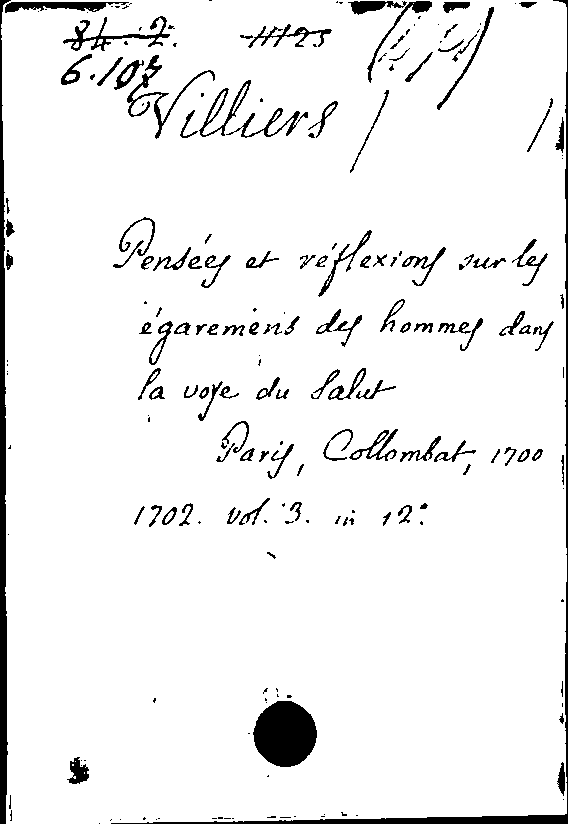 84. 2. 11123
6.107
Villiers
Pensées et réflexions sur les
égaremens des hommes dans
la voye du Salut
Paris, Collombat, 1700
1702. vol. 3. in 12º.